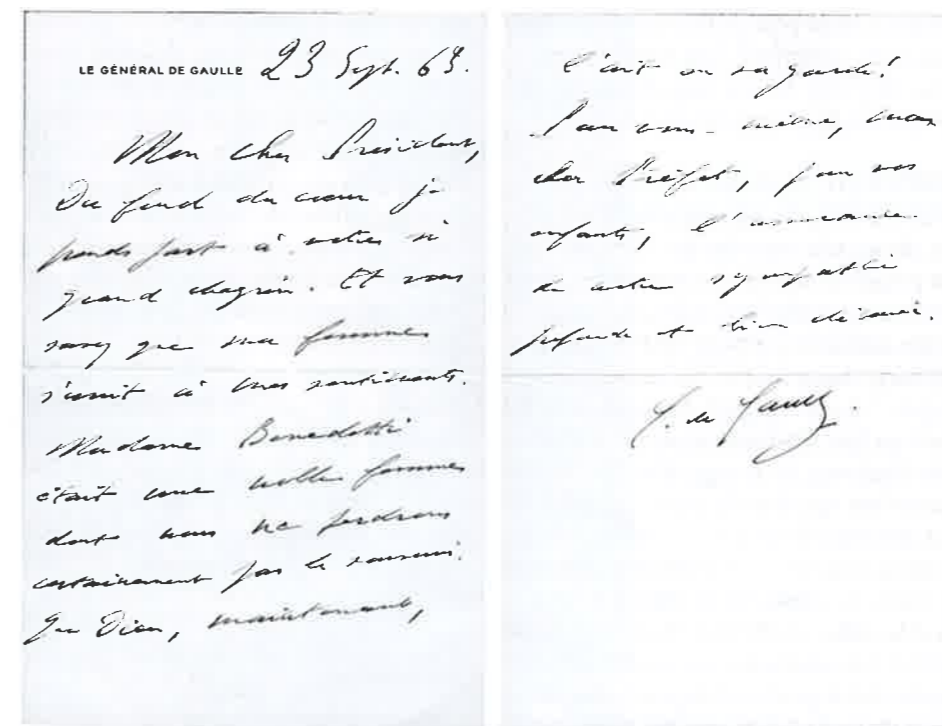 LE GÉNÉRAL DE GAULLE 23 Sept.
Mon cher Président,
Du fond du cœur je
prends part à votre si
grand chagrin. Et vous
savez que ma femme
s'unit à mes sentiments.
Madame Benedetti
était une noble femme
dont nous ne perdrons
certainement pas le souvenir.
Que Dieu, maintenant,
l'ait en sa garde!
Pour vous-même, mon
cher Préfet, pour vos
enfants, l'assurance
de notre sympathie
profonde et bien
C. de Gaulle.